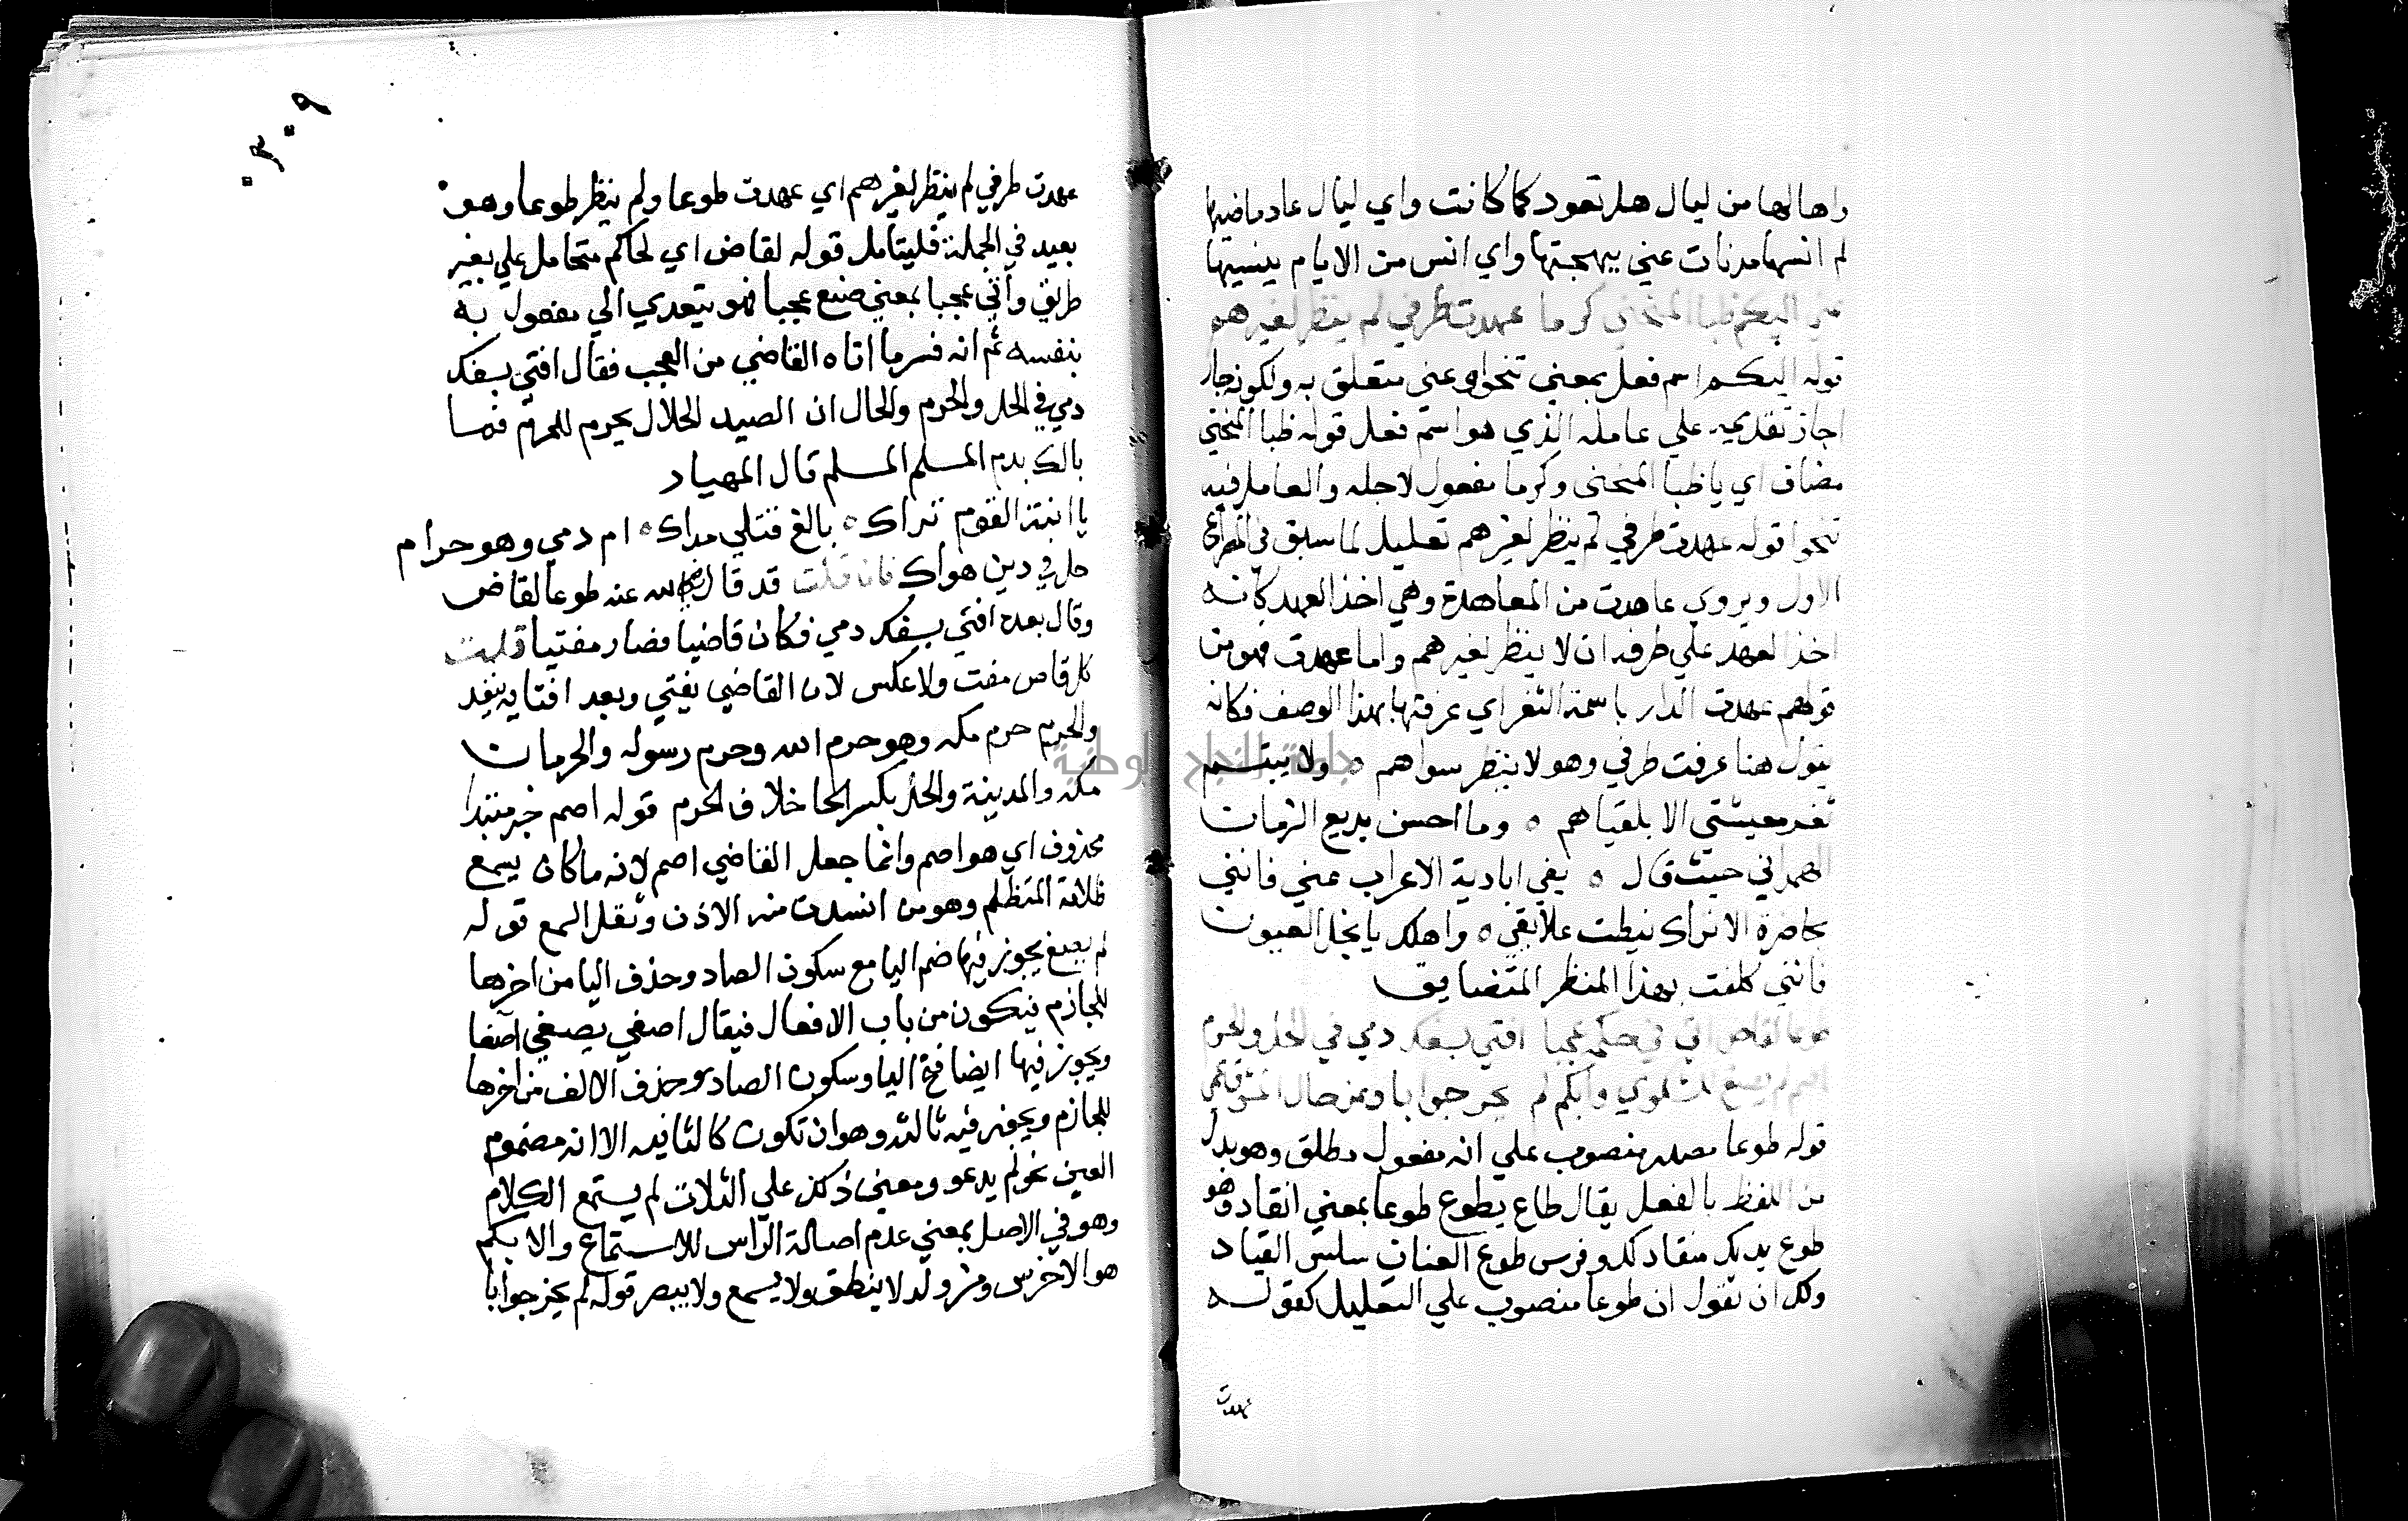 واها لها من ليال هل تعود كما كانت واي ليال عاد ماضيها
لم انسها مذ نات عني ببهجتها واي انس من الايام ينسيها
عني اليكم ظبا المنحنى كرما عهدت طرفي لم ينظر لغيرهم
قوله اليكم اسم فعل بمعنى تنحوا وعني متعلق به ولكونه جار
اجاز تقديمه علي عامله الذي هو اسم فعل قوله ظبا المنحني
مضاف اي يا ظبا المنحنى وكرما مفعول لاجله والعامل فيه
تنحوا قوله عهدت طرفي لم ينظر لغيرهم تعليل لما سبق في المصراع
الاول ويروي عاهدت من المعاهدة وهي اخذ العهد كانه
اخذ العهد علي طرفه ان لا ينظر لغيرهم واما عهدت فهو من
قولهم عهدت الدار باسمة الثغر اي عرفتها بهذا الوصف فكانه
يقول هنا عرفت طرفي وهو لا ينظر سواهم ٥ ولا يبتسم
ثغر معيشتي الا بلقياهم ٥ وما احسن بديع الزمان
الهمداني حيث قال ٥ يفي ابادية الاعراب عني فانني
بحاضرة الاتراك نيطت علايقي ٥ واهلك يا نجل العيون
فانني كلفت بهذا المنظر المتضايق
طوعا لقاض اتي في حكمه عجبا افتي بسفك دمي في الحل والحرم
اصم لم يصغ للشكوي وابكم لم يحر جوابا وعن حال المشوق عمي
قوله طوعا مصدر منصوب علي انه مفعول مطلق وهو بدل
من اللفظ بالفعل يقال طاع يطوع طوعا بمعني انقاد وهو
طوع يديك منقاد لك وفرس طوع العنان سلس القياد
ولك ان تقول ان طوعا منصوب علي التعليل كقوله
عهدت
٣٠٩
عهدت طرفي لم ينظر لغيرهم اي عهدت طوعا ولم ينظر طوعا وهو
بعيد في الجملة فليتامل قوله لقاض اي لحاكم متحامل علي بغير
طريق وأتي عجبا بمعني صنع عجبا فهو يتعدي الي مفعول به
بنفسه ثم انه فسر ما اتاه القاضي من العجب فقال افتي بسفك
دمي في الحل والحرم والحال ان الصيد الحلال يحرم للمحرم فما
بالك بدم المسلم المسلم قال المهياد
يا ابنة القوم تراك ٥ بالغ قتلي مداك ٥ ام دمي وهو حرام
حل في دين هواك فان قلت قد قال رضي الله عنه طوعا لقاض
وقال بعده افتي بسفك دمي فكان قاضيا فصار مفتيا قلت
كل قاض مفت ولا عكس لان القاضي يفتي وبعد افتايه ينفد
والحرم حرم مكه وهو حرم الله وحرم رسوله والحرمان
مكه والمدينة والحل بكسر الحا خلاف الحرم قوله اصم خبر مبتدا
محذوف اي هو اصم وانما جعل القاضي اصم لانه ما كان يسمع
ظلامة المتظلم وهو من انسدت منه الاذن وثقل السمع قوله
لم يصغ يجوز فيها ضم اليا مع سكون الصاد وحذف اليا من اخرها
للجازم فيكون من باب الافعال فيقال اصغي يصغي اصغا
ويجوز فيها ايضا فتح اليا وسكون الصاد وحذف الالف من اخرها
للجازم ويجوز فيه ثالثه وهو ان تكون كالثانيه الا انه مضموم
العين نحو لم يدعو ومعني ذلك علي الثلاث لم يستمع الكلام
وهو في الاصل بمعني عدم اصالة الراس للاستماع والابكم
هو الاخرس ومن ولد لا ينطق ولا يسمع ولا يبصر قوله لم يحر جوابا
جامعة النجاح الوطنية